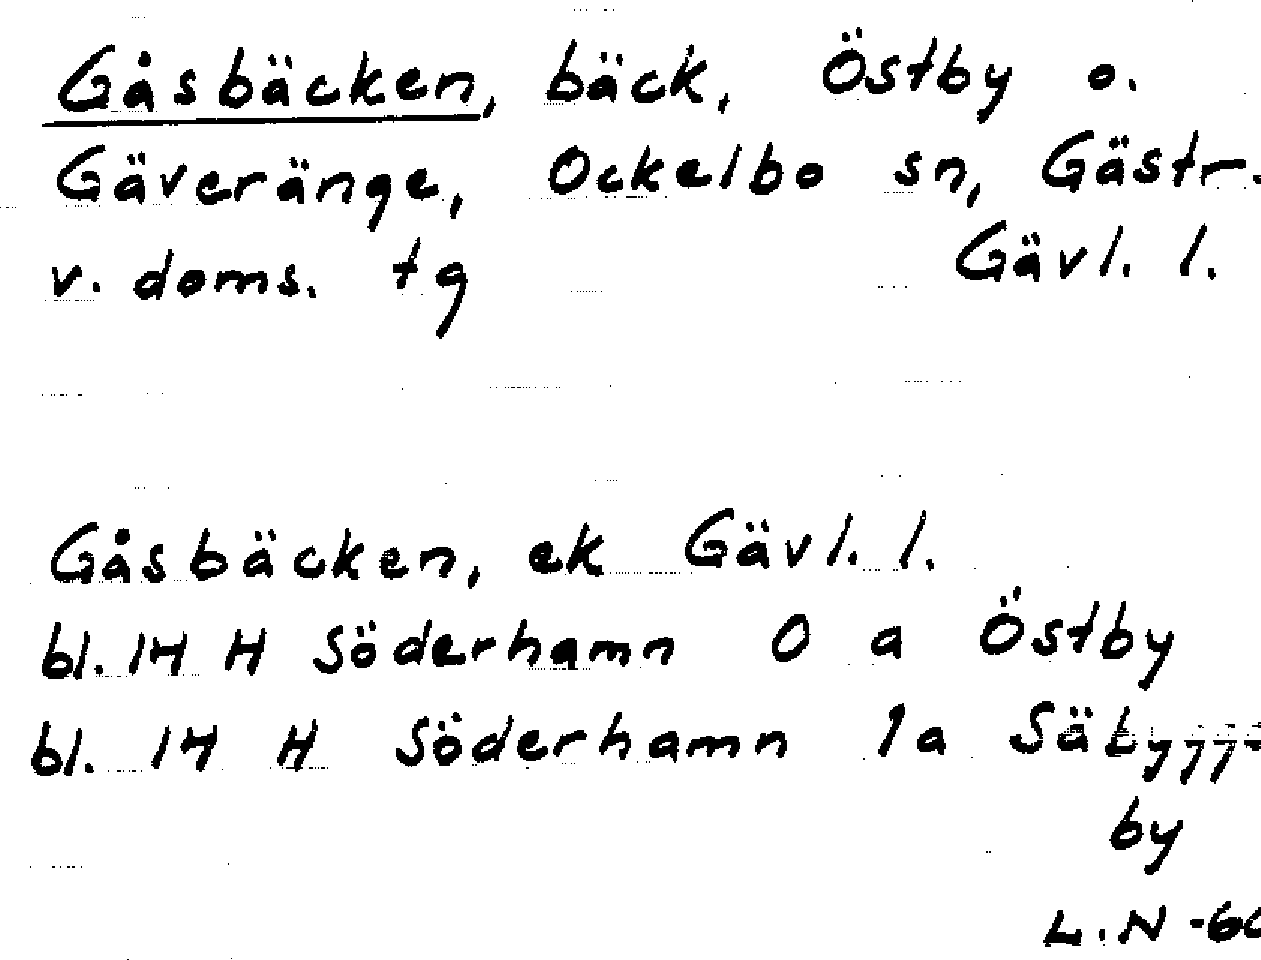 Gåsbäcken, bäck, Östby o.
Gäveränge, Ockelbo sn, Gästr.
v. doms. tg Gävl. l.
Gåsbäcken, ek Gävl. l.
bl. 14 H Söderhamn 0 a Östby
bl. 14 H Söderhamn 1a
by
L.N